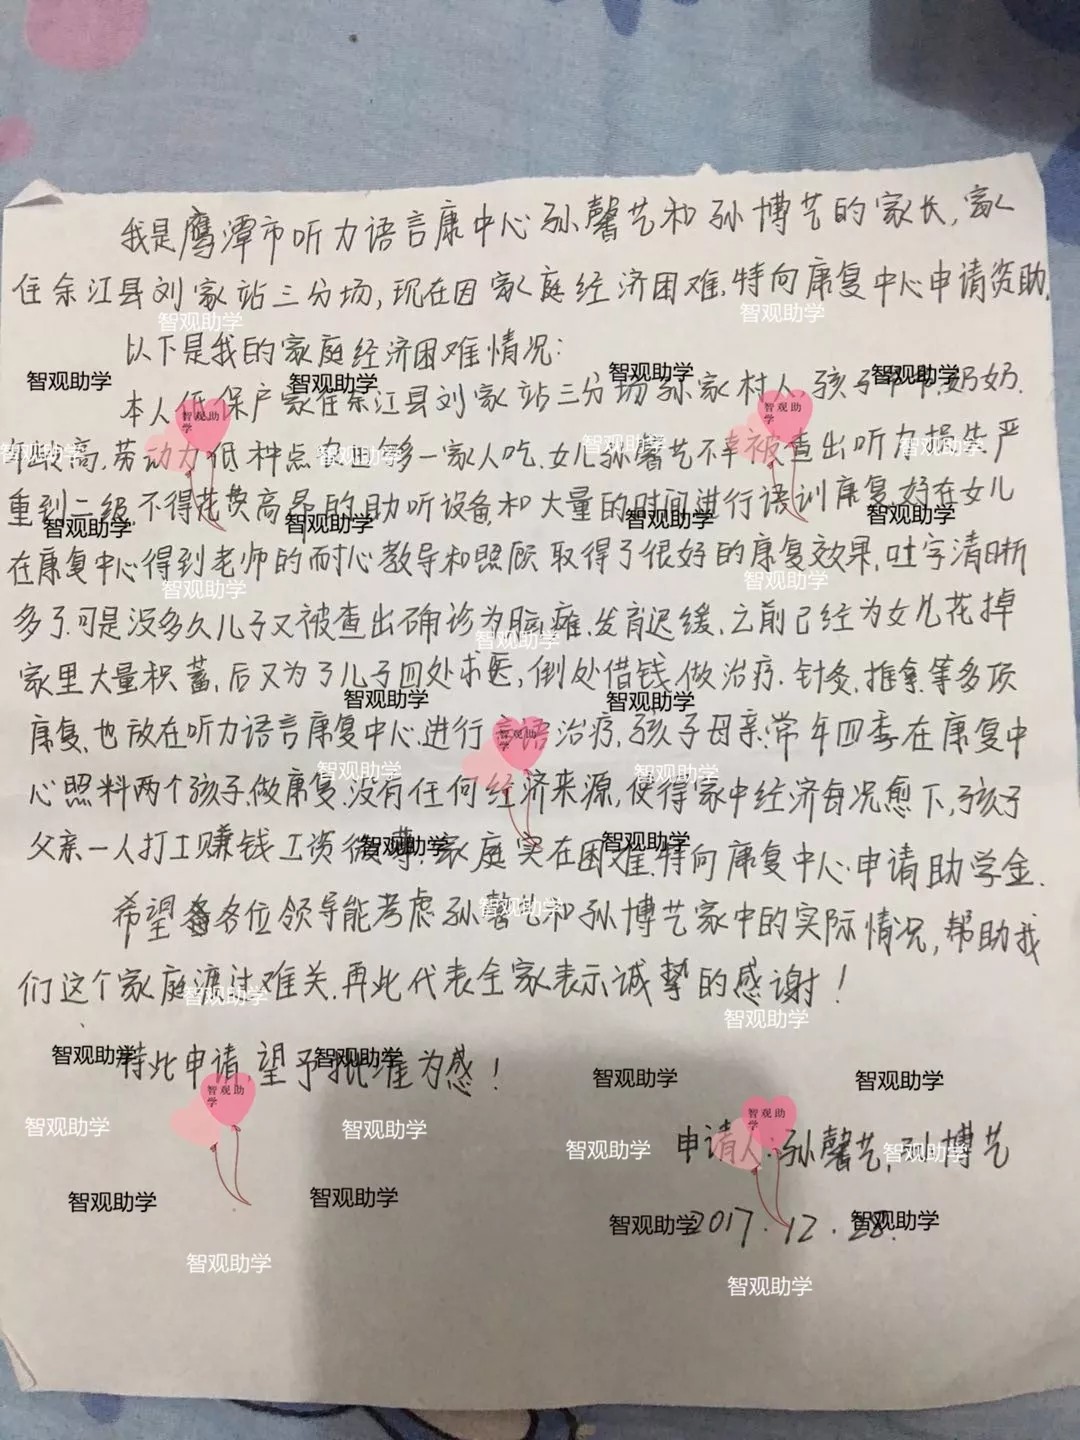 我是鹰潭市听力语言康中心孙馨艺和孙博艺的家长,家
住余江县刘家站三分场,现在因家庭经济困难,特向康复中心申请资助.
以下是我的家庭经济困难情况:
本人低保户家住余江县刘家站三分场孙家村人,孩子爷爷,奶奶.
年龄高,劳动力低种点 够一家人吃.女儿孙馨艺不幸被查出听力损失严
重到二级,不得花费高昂的助听设备和大量的时间进行语训康复,好在女儿
在康复中心得到老师的耐心教导和照顾 取得了很好的康复效果,吐字清晰
多了.可是没多久儿子又被查出确诊为脑瘫,发育迟缓,之前已经为女儿花掉
家里大量积蓄,后又为了儿子四处求医,倒处借钱,做治疗.针灸,推拿,等多项
康复,也放在听力语言康复中心,进行言语治疗,孩子母亲,常年四季在康复中
心照料两个孩子,做康复,没有任何经济来源,使得家中经济每况愈下,孩子
父亲一人打工赚钱工资微薄,家庭实在困难,特向康复中心申请助学金.
希望各位领导能考虑孙馨艺和孙博艺家中的实际情况,帮助我
们这个家庭渡过难关,再此代表全家表示诚挚的感谢!
特此申请,望予批准为感!
申请人:孙馨艺,孙博艺
2017.12.28.
智观助学